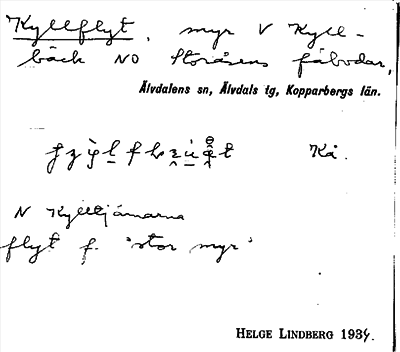 Kyllflyt, myr V Kyll-
bäck NO Storåsens fäbodar,
Älvdalens sn, Älvdals tg, Kopparbergs län.
Kå.
N Kylltjärnarna
flyt f. 'stor myr'
HELGE LINDBERG 1934.